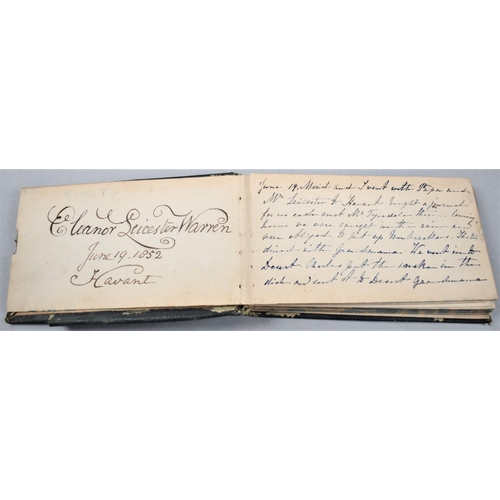 Eleanor Leicester Warren
June 19. 1852
Havant
June 19. Minet and I went with Papa and
Mr Leicester to Havant bought a journal
for us each met Mr Tyndal coming
home we were caught in the rain and
were obliged to put up Umbrellas.
dined with Grandmama We went in to
Desert Charles put the snake in the
dish and sent it to Desert Grandmama